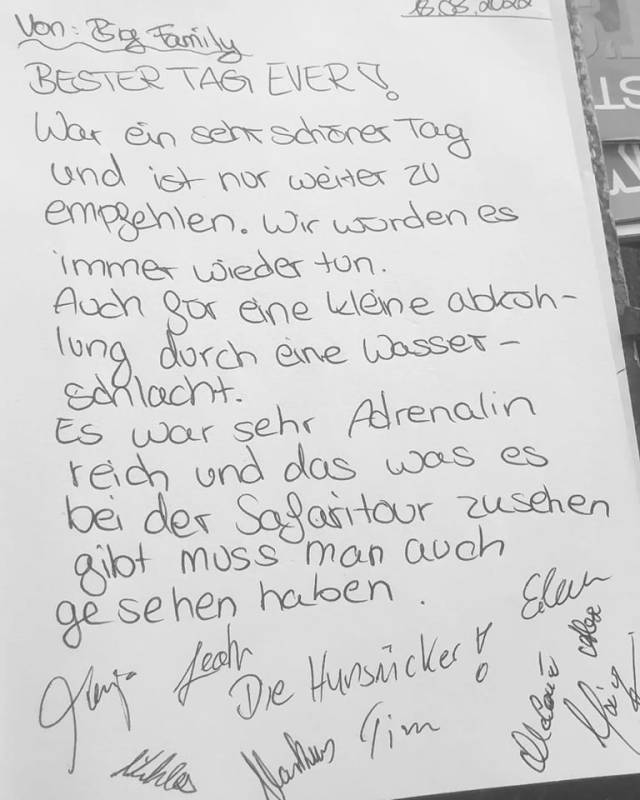 Von: Big Family
BESTER TAG EVER!
War ein sehr schöner Tag
und ist nur weiter zu
empfehlen. Wir würden es
immer wieder tun.
Auch für eine kleine abküh-
lung durch eine Wasser-
schlacht.
Es war sehr Adrenalin
reich und das was es
bei der Safaritour zusehen
gibt muss man auch
gesehen haben.
Leah
Die Hunsrücker!
Markus Tim